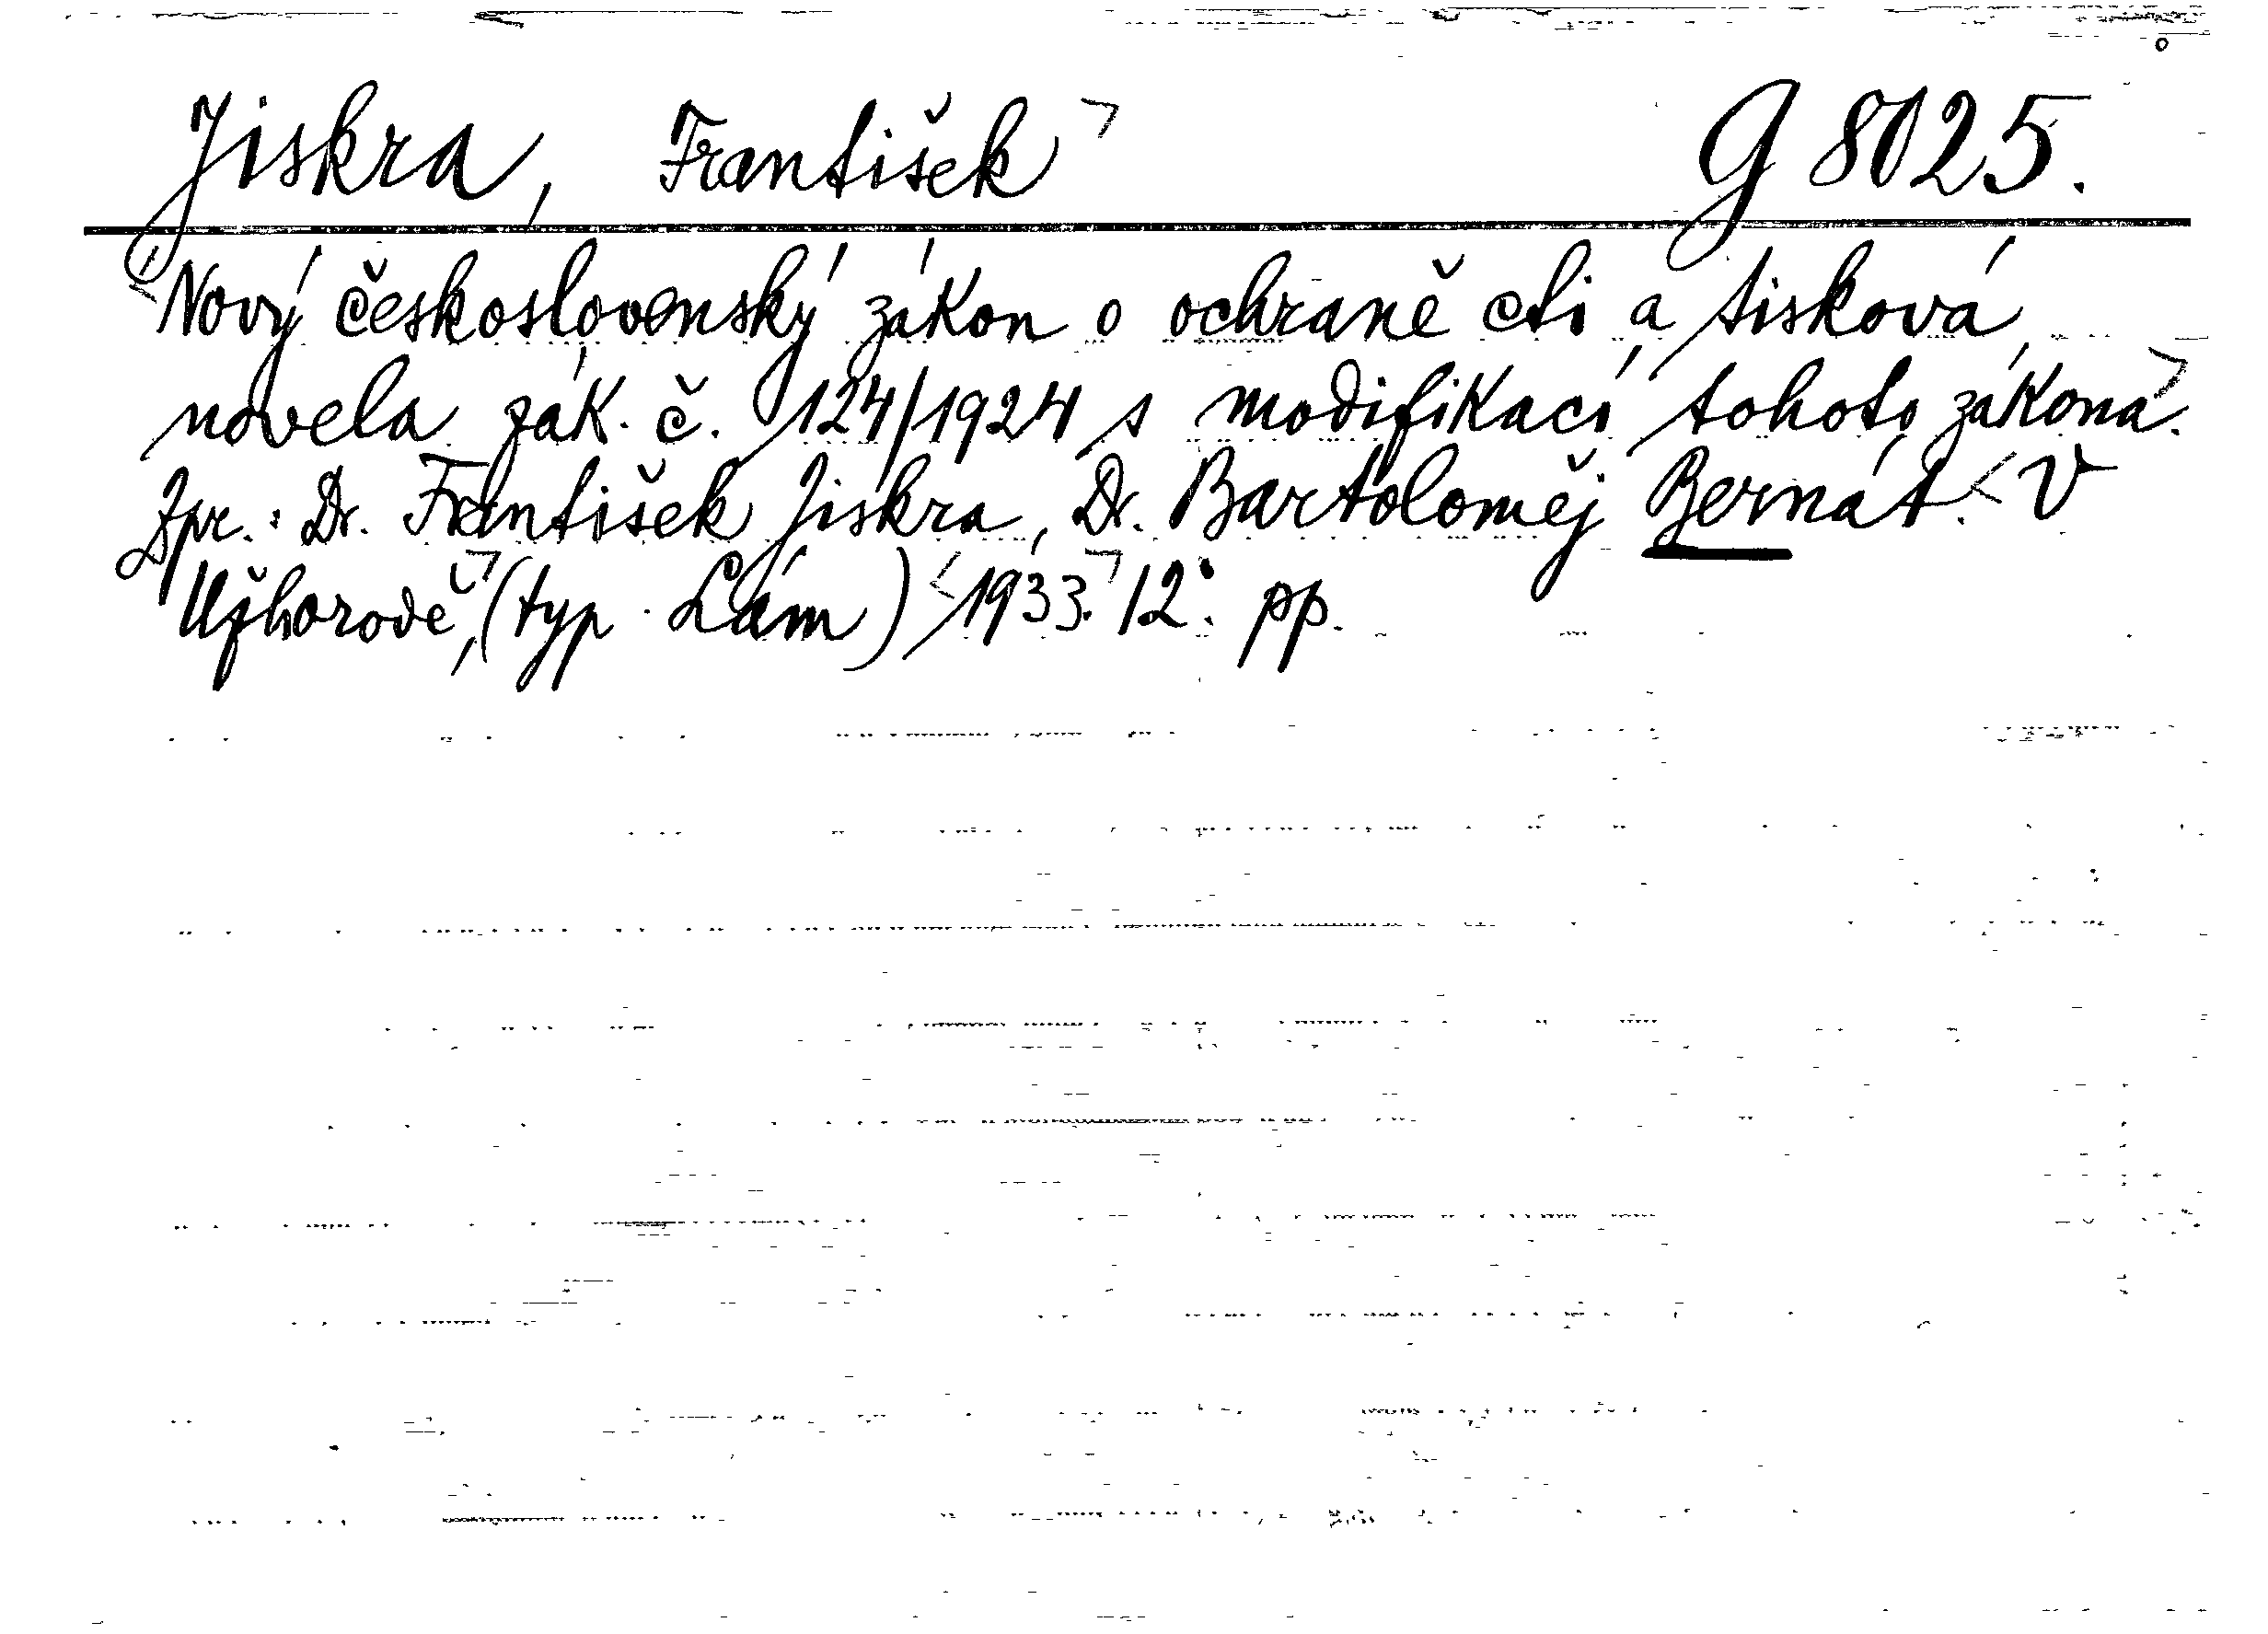 Jiskra, František G 8025.
Nový československý zákon o ochraně cti a tisková
novela zák. č. 124/1924 s modifikací tohoto zákona.
Zpr.: Dr. František Jiskra, Dr. Bartoloměj Bernát. V
Užhorodě, (typ. Lám) 1933. 12°. pp.